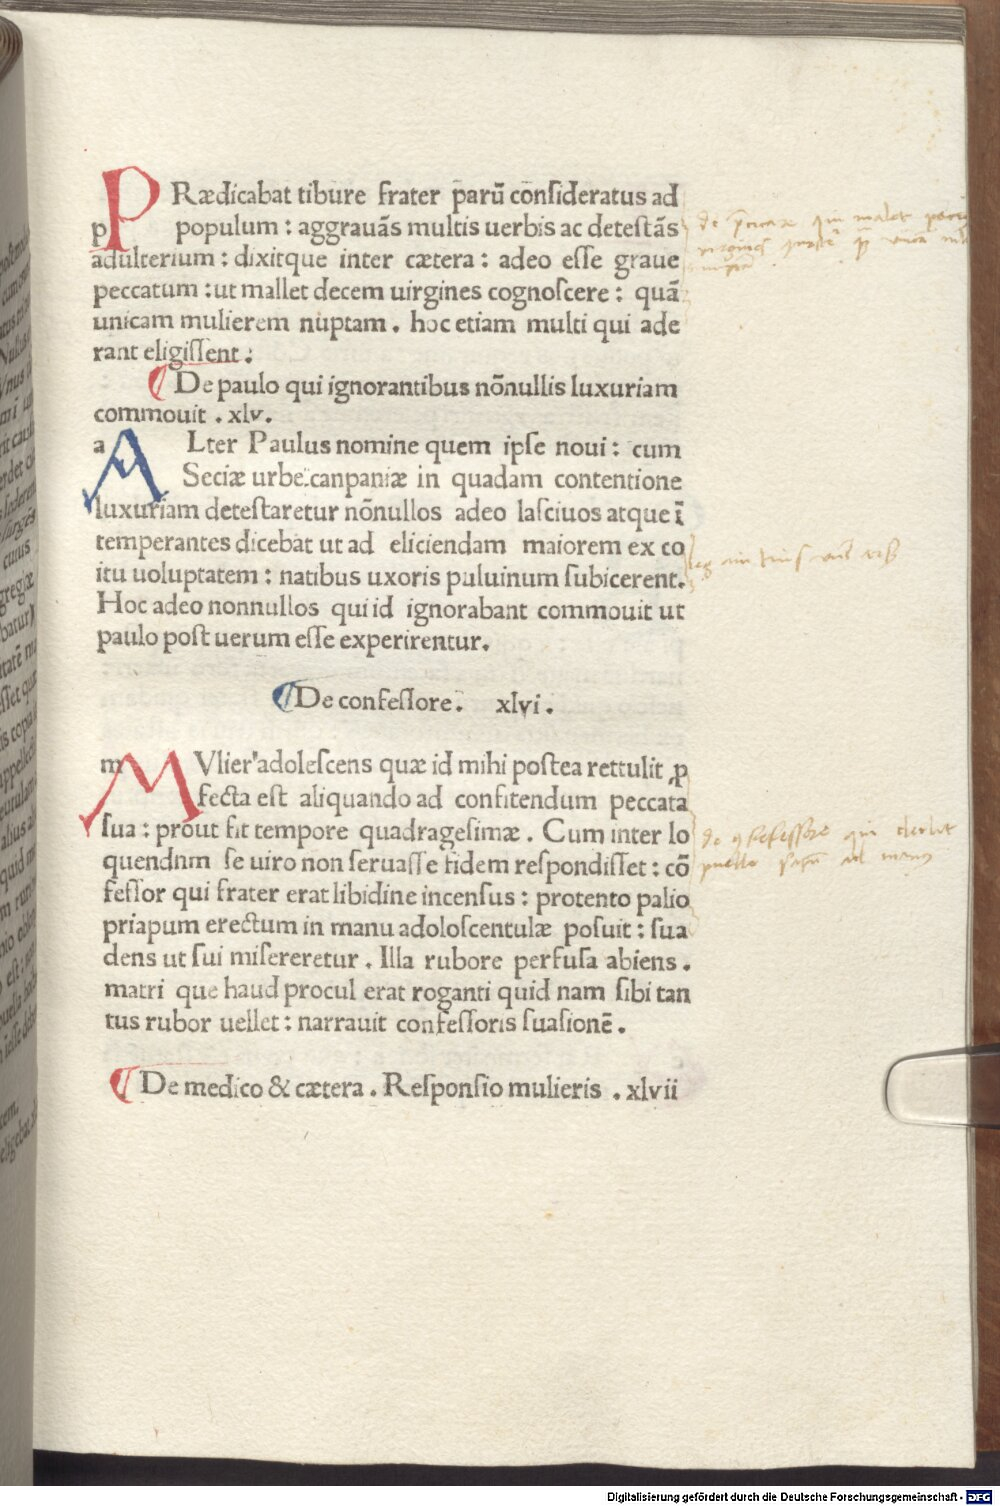 PRædicabat tibure frater parū consideratus ad
populum : aggrauās multis uerbis ac detestās
adulterium : dixitque inter cætera : adeo esse graue
peccatum : ut mallet decem uirgines cognoscere : quā
unicam mulierem nuptam . hoc etiam multi qui ade
rant eligissent .
¶ De paulo qui ignorantibus nōnullis luxuriam
commouit . xlv .
ALter Paulus nomine quem ipse noui : cum
Seciæ urbe canpaniæ in quadam contentione
luxuriam detestaretur nōnullos adeo lasciuos atque ī
temperantes dicebat ut ad eliciendam maiorem ex co
itu uoluptatem : natibus uxoris puluinum subicerent .
Hoc adeo nonnullos qui id ignorabant commouit ut
paulo post uerum esse experirentur .
¶ De confessore . xlvi .
MVlier adolescens quæ id mihi postea rettulit ꝓ
fecta est aliquando ad confitendum peccata
sua : prout fit tempore quadragesimæ . Cum inter lo
quendnm se uiro non seruasse fidem respondisset : cō
fessor qui frater erat libidine incensus : protento palio
priapum erectum in manu adoloscentulæ posuit : sua
dens ut sui misereretur . Illa rubore perfusa abiens .
matri que haud procul erat roganti quid nam sibi tan
tus rubor uellet : narrauit confessoris suasionē .
¶ De medico & cætera . Responsio mulieris . xlvii
Digitalisierung gefördert durch die Deutsche Forschungsgemeinschaft - DFG